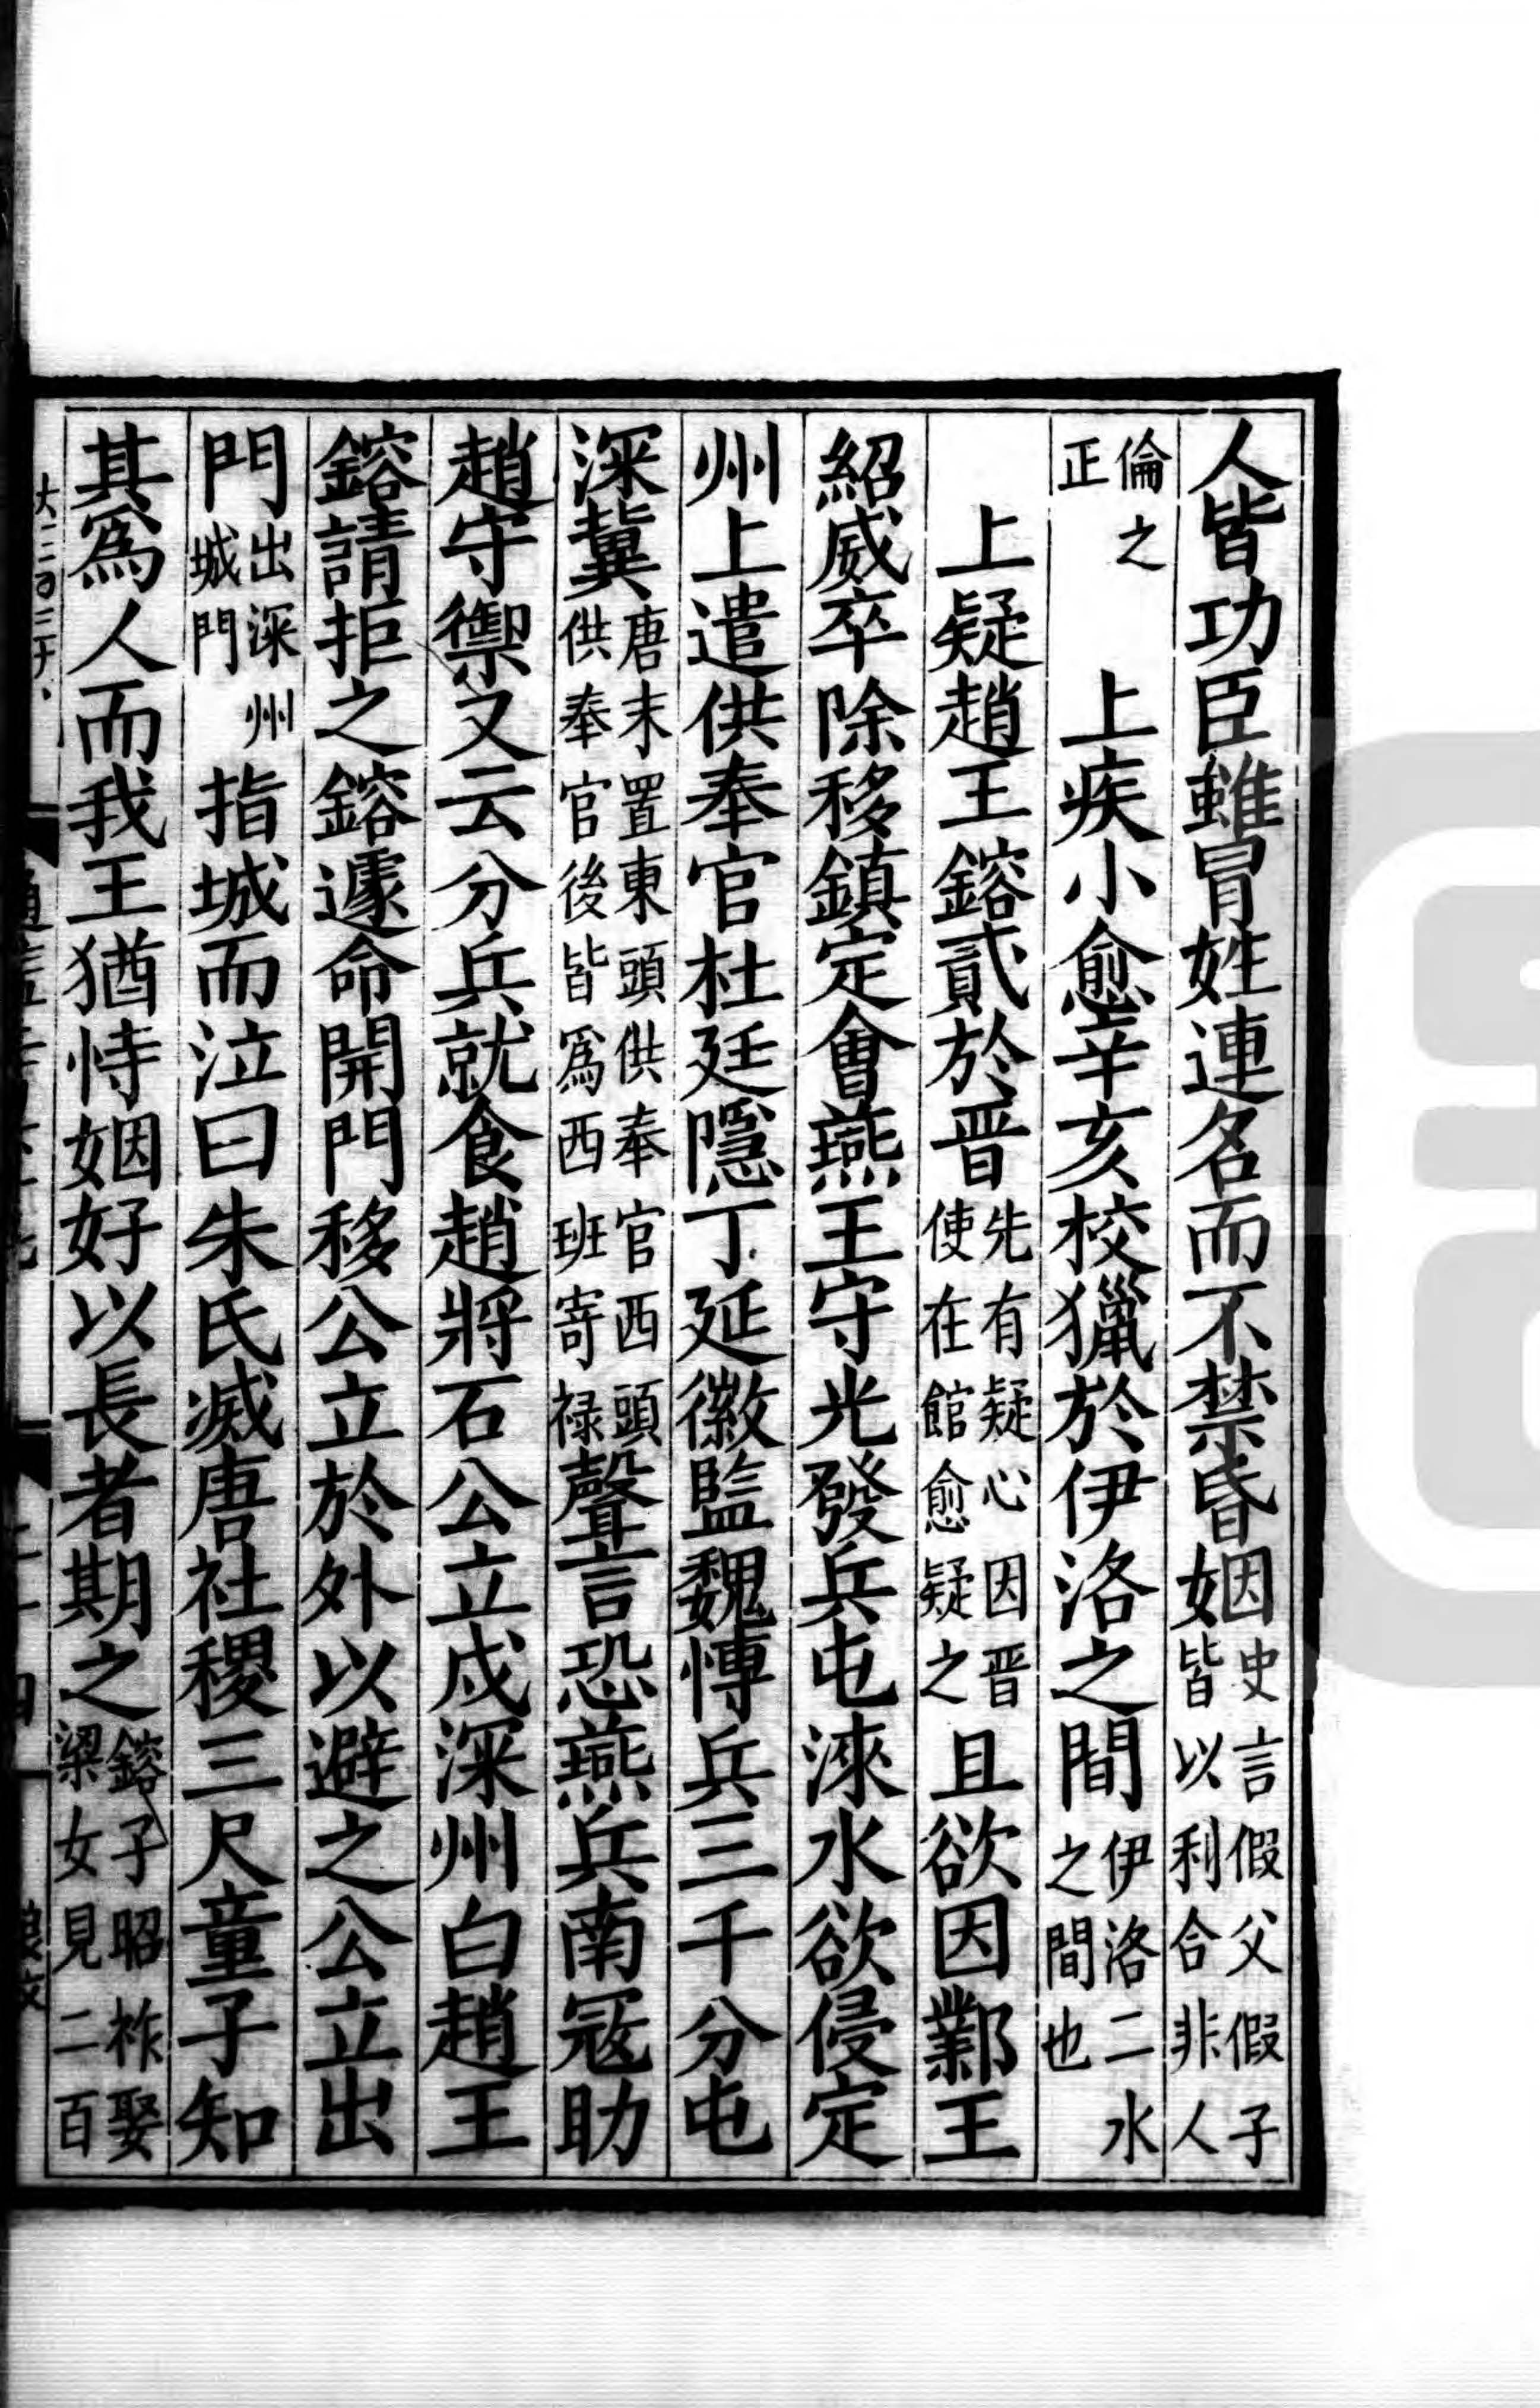 人皆功臣雖冐姓連名而不禁昏姻史言假父假子皆以利合非人
倫之正　上疾小愈辛亥校獵於伊洛之間伊洛二水之間也
上疑趙王鎔貳於晋先有疑心因晋使在館愈疑之且欲因鄴王
紹威卒除移鎮定會燕王守光發兵屯淶水欲侵定
州上遣供奉官杜廷隱丁延徽監魏愽兵三千分屯
深冀唐末置東頭供奉官西頭供奉官後皆爲西班寄禄聲言恐燕兵南冦助
趙守禦又云分兵就食趙將石公立戍深州白趙王
鎔請拒之鎔遽命開門移公立於外以避之公立出
門出深州城門指城而泣曰朱氏滅唐社稷三尺童子知
其爲人而我王猶恃姻好以長者期之鎔子昭祚娶梁女見二百